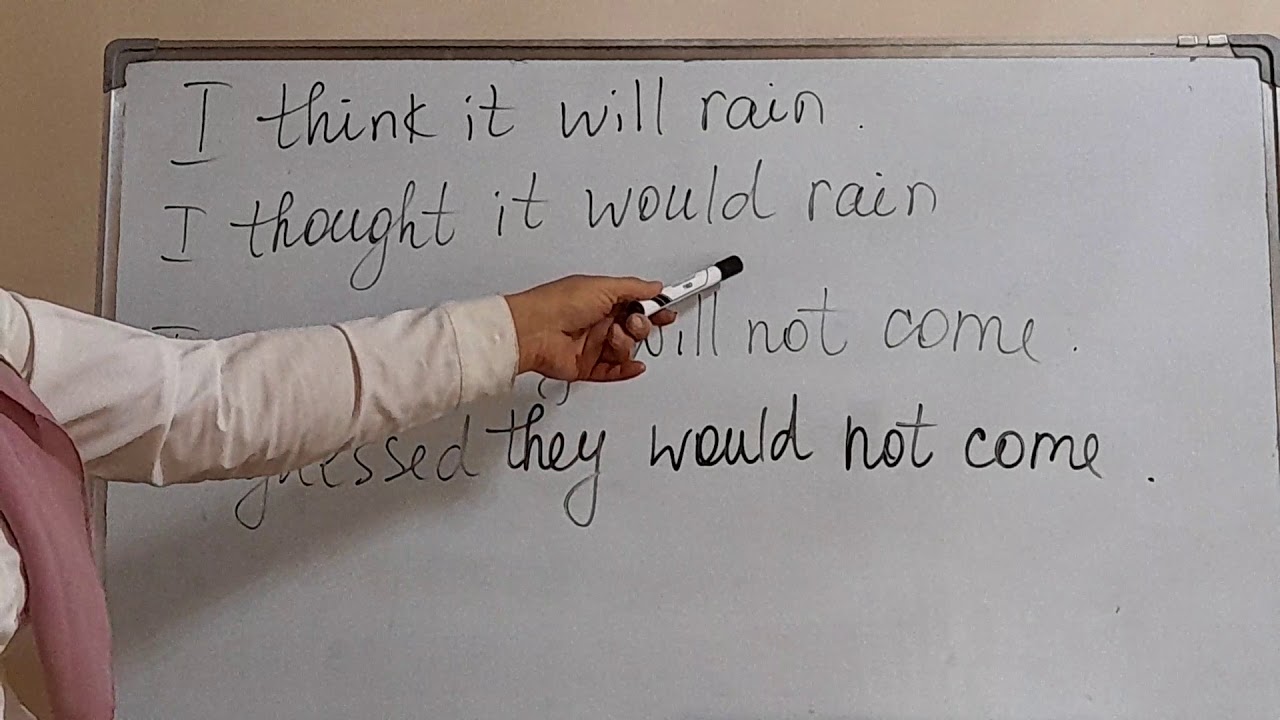 I think it will rain.
I thought it would rain
I will not come.
guessed they would not come.